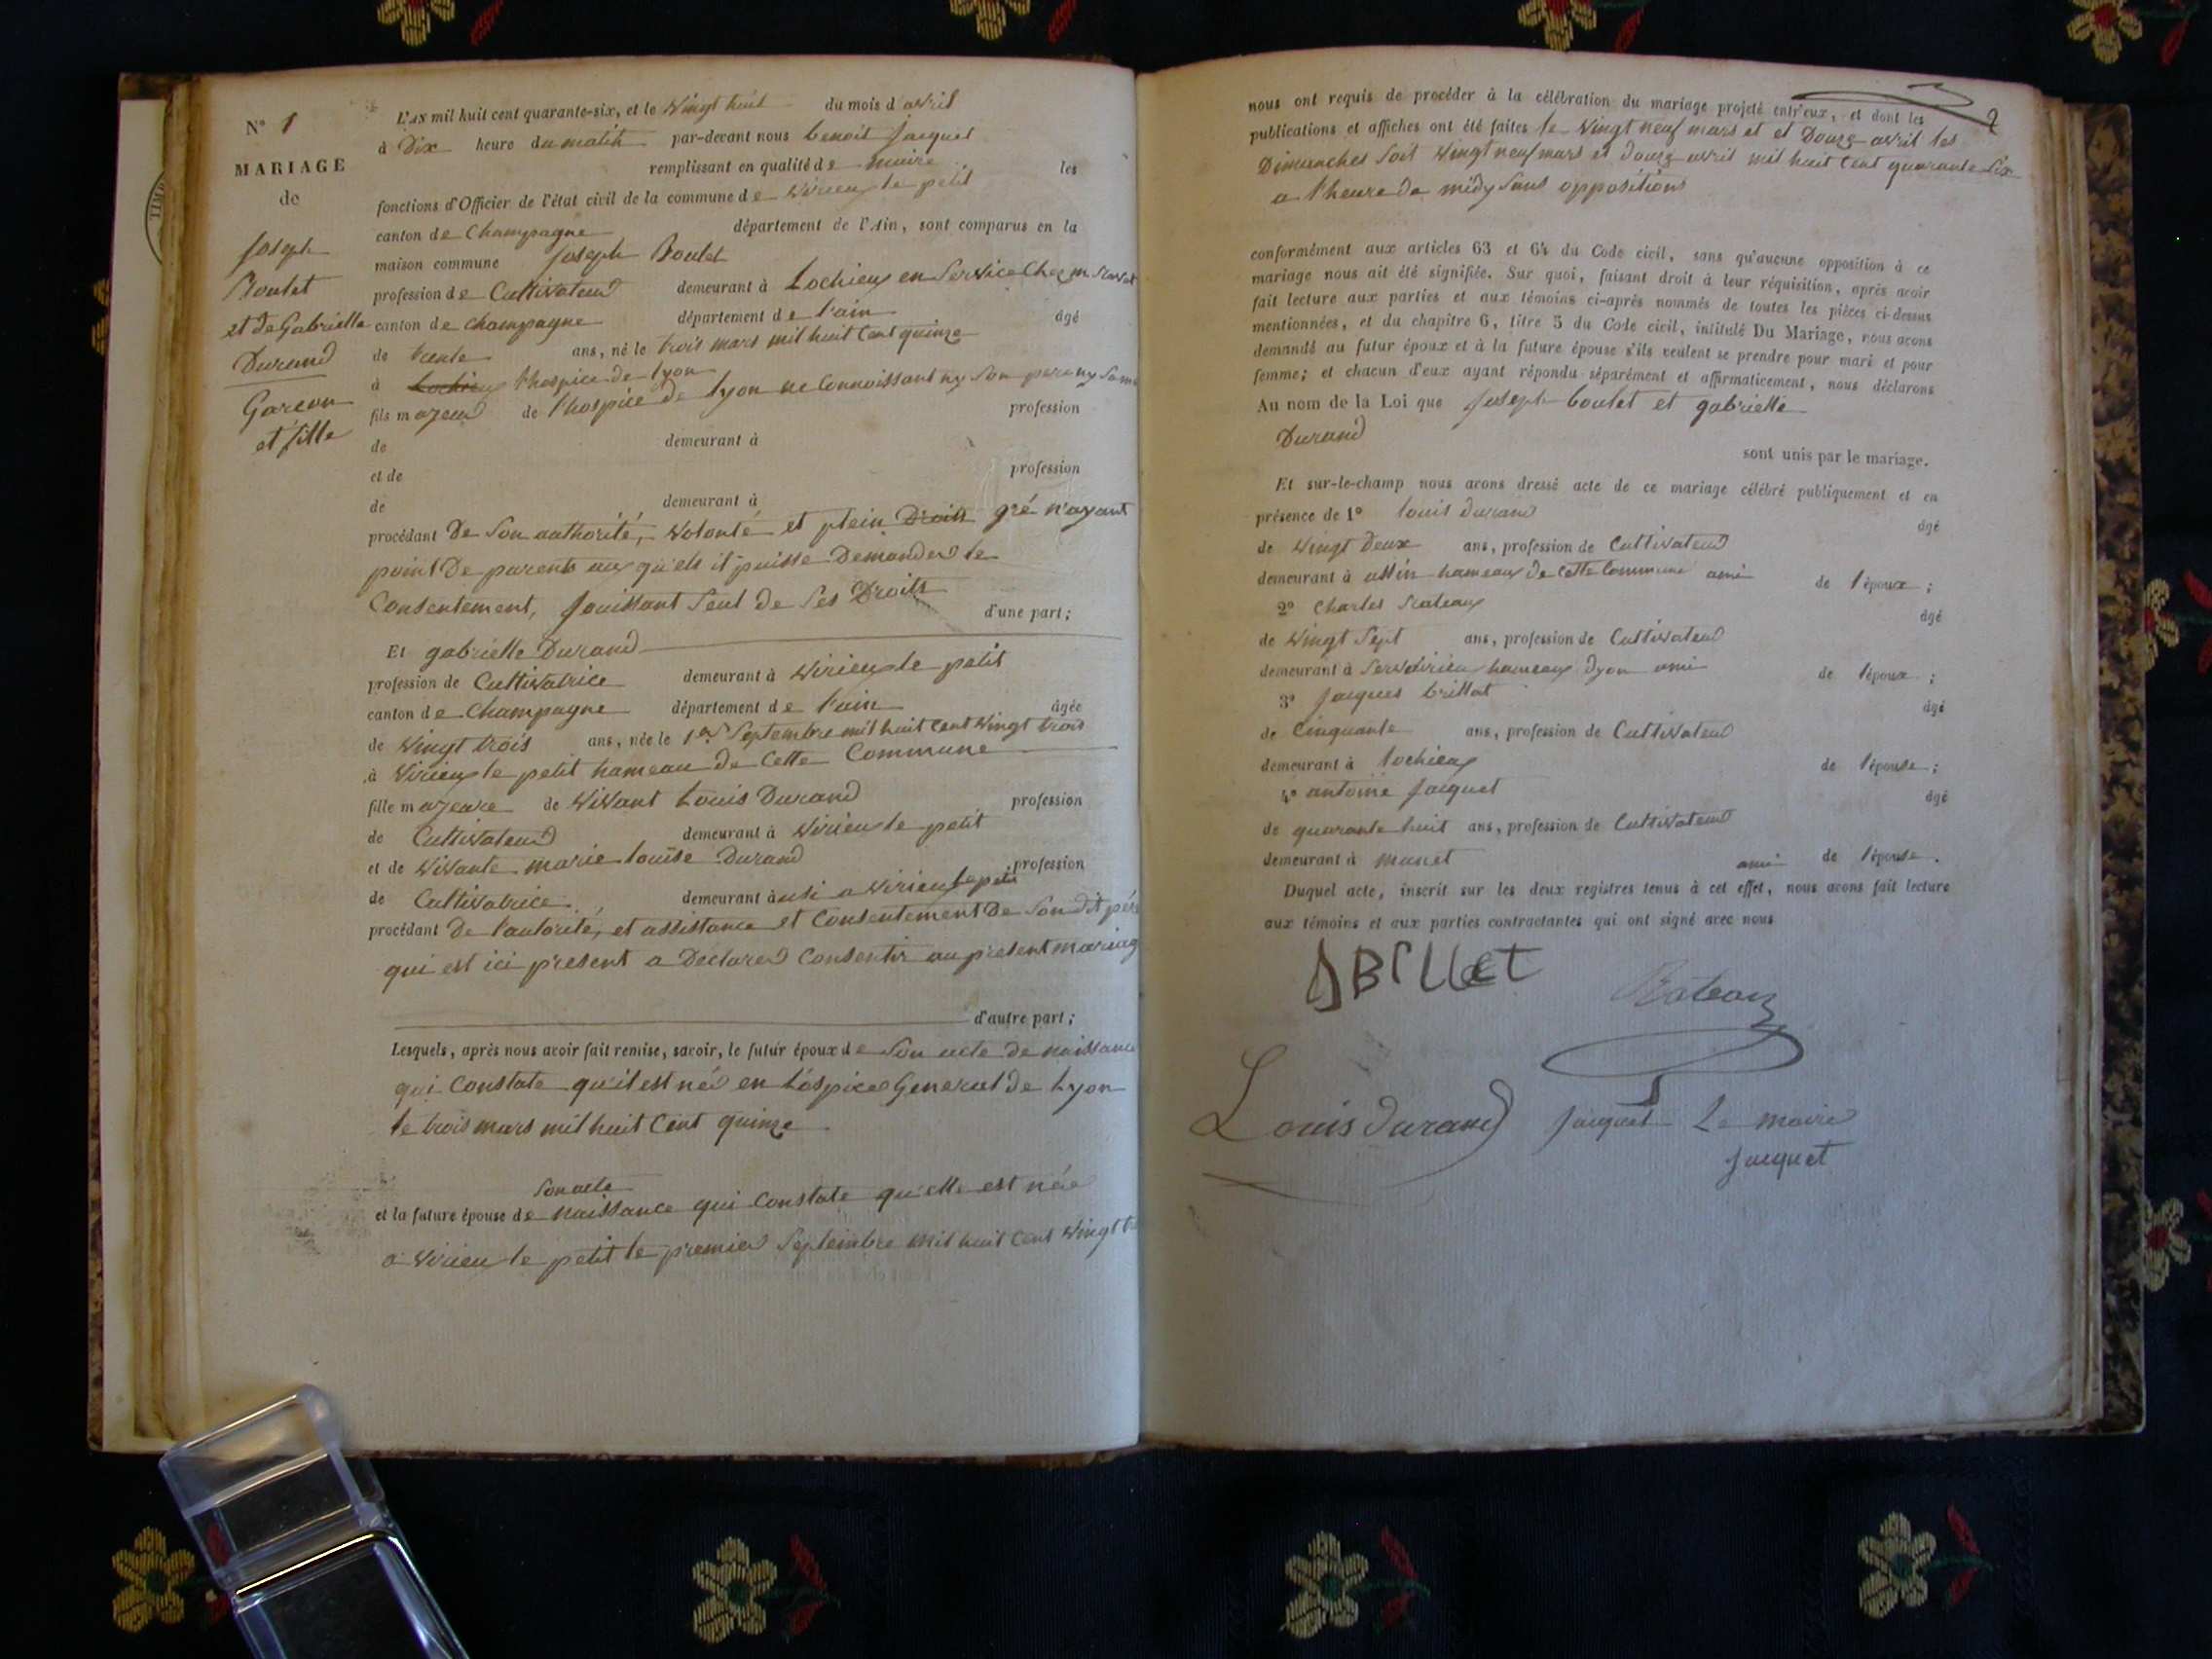 N° 1
MARIAGE
de
Joseph
Boulet
et de Gabrielle
Durand
Garcon
et fille
L'AN mil huit cent quarante-six, et le vingt huit du mois d'avril
à Dix heure du matin par-devant nous benoit Jacquet
remplissant en qualité de maire les
fonctions d'Officier de l'état civil de la commune de virieu le petit
canton de Champagne département de l'Ain, sont comparus en la
maison commune Joseph Boulet
profession de Cultivateur demeurant à Lochieu en service Chez m.
canton de champagne département de l'ain âgé
de trente ans, né le trois mars mil huit Cent quinze
à Lochieu l'hospice de lyon
fils majeur de l'hospice de lyon ne Connoissant ny son pere ny sa
profession
de demeurant à
et de profession
de demeurant à
procédant De son authorité, volonté et plein Droit gré n'ayant
point De parents aux qu'els il puisse Demander le
Consentement, Jouissant seul de ses Droits
d'une part;
Et gabrielle Durand
profession de Cultivatrice demeurant à virieu le petit
canton de Champagne département de l'ain âgée
de vingt trois ans, née le 1er Septembre mil huit Cent vingt trois
à virieu le petit hameau de Cette Commune
fille majeure de vivant Louis Durand profession
de Cultivateur demeurant à virieu le petit
et de vivante marie louise Durand profession
de Cultivatrice demeurant à usi a virieu le petit
procédant De l'autorité, et assistance et Consentement De son dit père
qui est ici present a Declarer Consentir au present mariag
d'autre part;
Lesquels, après nous avoir fait remise, savoir, le futur époux de son acte de naissance
qui Constate qu'il est né en l'óspice General de Lyon
le trois mars mil huit Cent quinze
son acte
et la future épouse de naissance qui Constate qu'elle est née
a virieu le petit le premier Septembre mil huit Cent vingt
2
nous ont requis de procéder à la célébration du mariage projeté entr'eux, et dont les
publications et affiches ont été faites le vingt neuf mars et et Douze avril les
Dimanches soit vingt neuf mars et douze avril mil huit Cent quarante six
a l'heure de midy sans oppositions
conformément aux articles 63 et 64 du Code civil, sans qu'aucune opposition à ce
mariage nous ait été signifiée. Sur quoi, faisant droit à leur réquisition, après avoir
fait lecture aux parties et aux témoins ci-après nommés de toutes les pièces ci-dessus
mentionnées, et du chapitre 6, titre 5 du Code civil, intitulé Du Mariage, nous avons
demandé au futur époux et à la future épouse s'ils veulent se prendre pour mari et pour
femme; et chacun d'eux ayant répondu séparément et affirmativement, nous déclarons
Au nom de la Loi que Joseph boulet et gabrielle
Durand
sont unis par le mariage.
Et sur-le-champ nous avons dressé acte de ce mariage célébré publiquement et en
présence de 1° louis durand âgé
de vingt Deux ans, profession de Cultivateur
demeurant à assin hameaux de Cette Commune ami de l'époux;
2° Charles Rateaux âgé
de vingt sept ans, profession de Cultivateur
demeurant à hameaux dyon ami de l'époux;
3° Jacques brillat âgé
de Cinquante ans, profession de Cultivateur
demeurant à lochieu de l'épouse;
4° antoine Jacquet âgé
de quarante huit ans, profession de Cultivateur
demeurant à munet ami de l'épouse.
Duquel acte, inscrit sur les deux registres tenus à cet effet, nous avons fait lecture
aux témoins et aux parties contractantes qui ont signé avec nous
Louis durand Jacquet Le maire
Jacquet